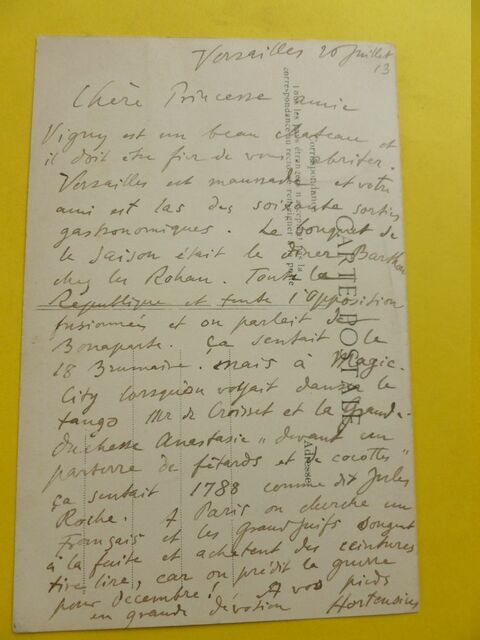 Versailles 20 Juillet
13
Chère Princesse amie
Vigny est un beau chateau et
il doit être fier de vous abriter.
Versailles est maussade et votre
ami est las des soixante sorties
gastronomiques. Le bouquet de
la saison était le dîner Barthou
chez les Rohan. Toute la
République et toute l'Opposition
fusionnées et on parlait de
Bonaparte. Ça sentait le
18 Brumaire. mais à Magic-
City lorsqu'on voyait danser le
tango Mr de Croisset et la Grande-
Duchesse Anastasie "devant un
parterre de fêtards et de cocottes"
ça sentait 1788 comme dit Jules
Roche. A Paris on cherche un
Français et les grands juifs songent
à la fuite et achetent des ceintures
tire lire, car on prédit la guerre
pour décembre! A vos pieds
en grande dévotion
CARTE POSTALE
Correspondance
Adresse